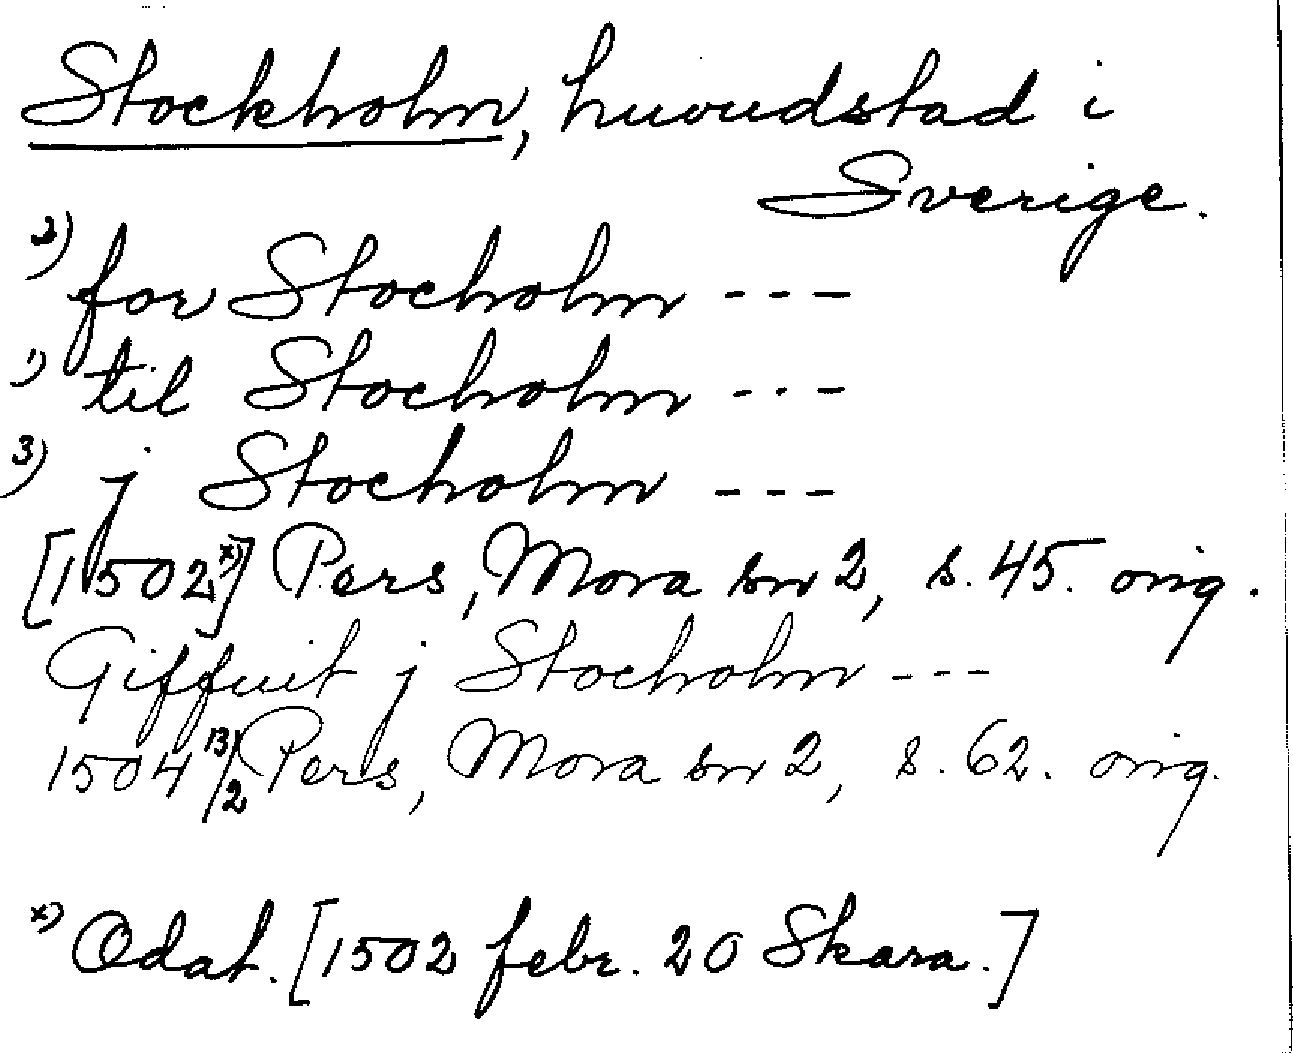 Stockholm, huvudstad i
Sverige.
2) for Stocholm ---
1) til Stocholm ---
3) j Stocholm ---
[1502x)] Pers, Mora sn 2, s. 45. orig.
Giffuit j Stocholm ---
1504 13/2 Pers, Mora sn 2, s. 62. orig.
x) Odat. [1502 febr. 20 Skara.]